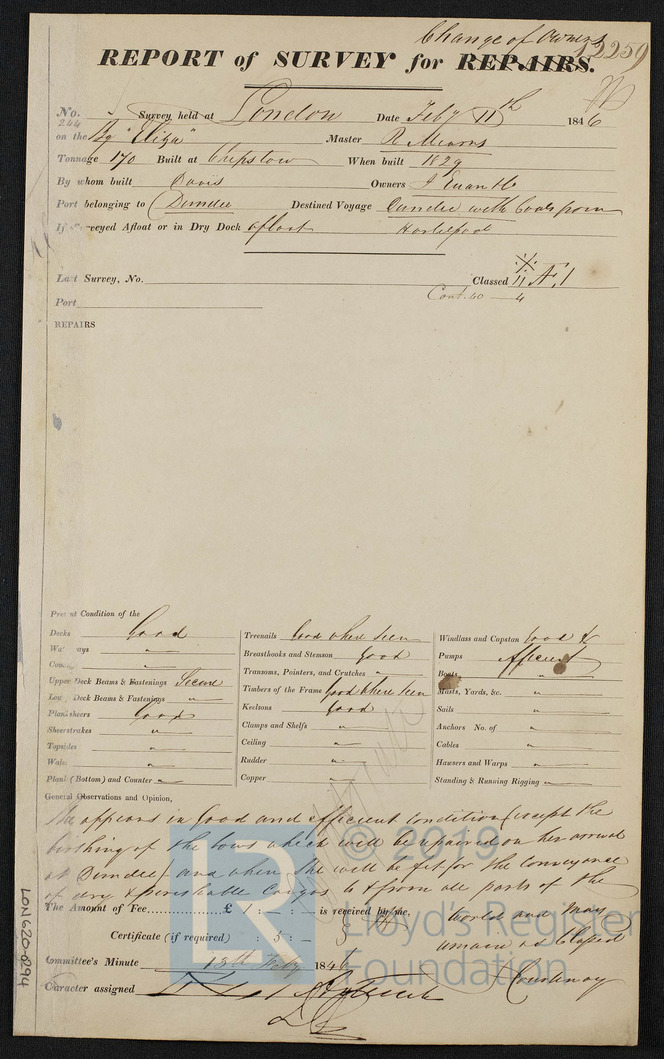 Change of Owners
12259
REPORT of SURVEY for REPAIRS.
No. 244 Survey held at London Date Feby 11th 1846
on the Bg "Eliza" Master R Mearns
Tonnage 170 Built at Chepstow When built 1829
By whom built Davis Owners J Ewan & Co
Port belonging to Dundee Destined Voyage Dundee with Coals from
If Surveyed Afloat or in Dry Dock afloat Hartlepool
Last Survey, No. Classed Æ 1
Cont. 40 - 4
Port
REPAIRS
Present Condition of the
Decks Good
Waterways "
Comings "
Upper Deck Beams & Fastenings Secure
Low. Deck Beams & Fastenings "
Planksheers Good
Sheerstrakes "
Topsides "
Wales "
Plank (Bottom) and Counter "
Treenails Good where seen
Breasthooks and Stemson Good
Transoms, Pointers, and Crutches "
Timbers of the Frame Good where seen
Keelsons Good
Clamps and Shelfs "
Ceiling "
Rudder "
Copper "
Windlass and Capstan Good &
Pumps Efficient
Boats "
Masts, Yards, &c. "
Sails "
Anchors No. of "
Cables "
Hawsers and Warps "
Standing & Running Rigging "
General Observations and Opinion,
She appears in Good and efficient condition (except the
birthing of the bows which will be repaired on her arrival
at Dundee) and when, She will be fit for the conveyance
of dry & perishable Cargos to & from all parts of the
World and May
remain as Classed
The Amount of Fee £ 1 : - : - is received by me,
Certificate (if required) : 5 : -
Committee's Minute 13th Feby 1846
J Courtenay
Character assigned
LON620-0294
© 2019
Lloyd's Register
Foundation
LR